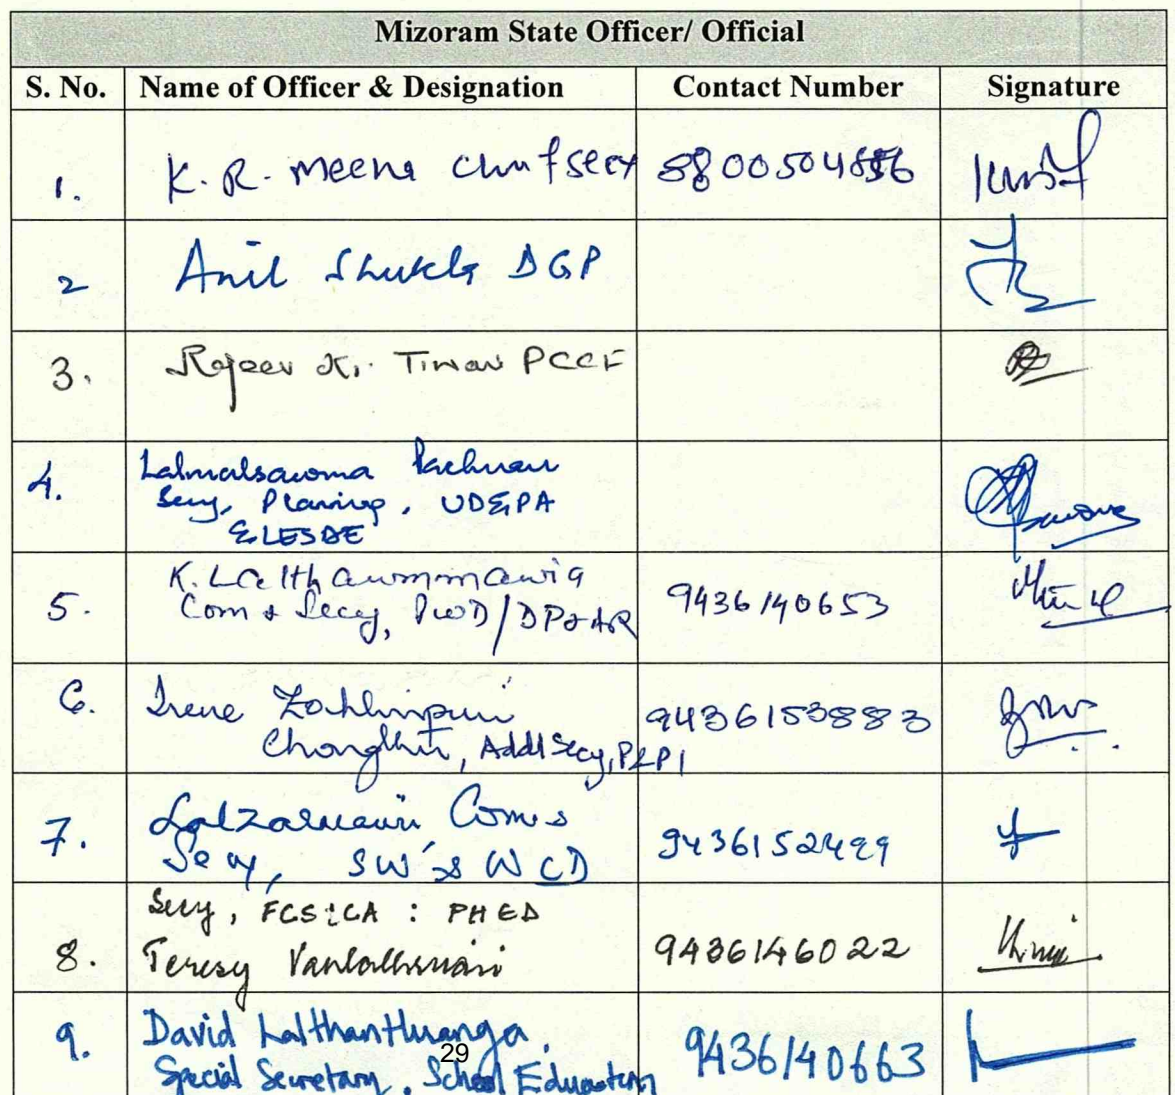 Mizoram State Officer/ Official
S. No. Name of Officer & Designation Contact Number Signature
1. K. R. Meena Chief Secy 8800504856
2 Anil Shukla DGP
3. Rajeev Kr. Tiwari PCCF
4. Lalmalsawma Pachuau
Secy, Planning, UD&PA
& LESDE
5. K. Lalthawmmawia 9436140653
Com & Secy, PWD/DP&AR
6. Irene Zohliripuii 9436153883
Chongthu, Addl Secy, P&PI
7. Lalzarmawii Com &
Secy, SW & WCD 9436152499
Secy, FCS&CA : PHED
8. Teresy Vanlalhruaii 9436146022
9. David Lalthantluanga. 9436140663
Special Secretary, School Education
29